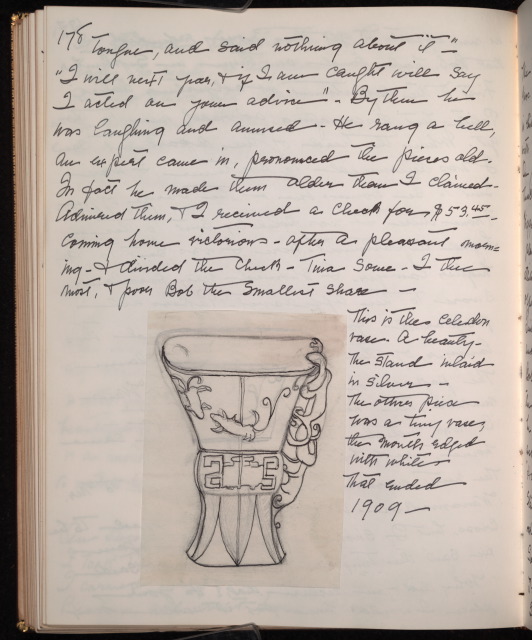 178
tongue, and said nothing about it"—
"I will next year, & if I am caught will say
I acted on your advice" - By then he
was laughing and amused - He rang a bell,
an expert came in, pronounced the pieces old -
In fact he made them older than I claimed -
Admired them, & I received a check for $59.45 -
Coming home victorious - after a pleasant morn=
ing - I divided the check - Tina some - I the
most, & poor Bob the smallest share —
This is the celedon
vase. A beauty -
The stand inlaid
in silver -
The other piece
was a tiny vase,
the mouth edged
with white -
That ended
1909 —